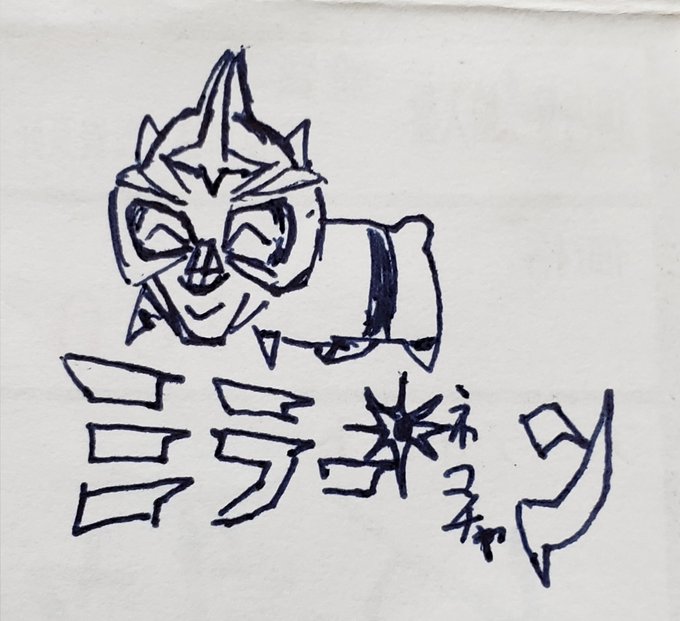 ミラーネコチャン